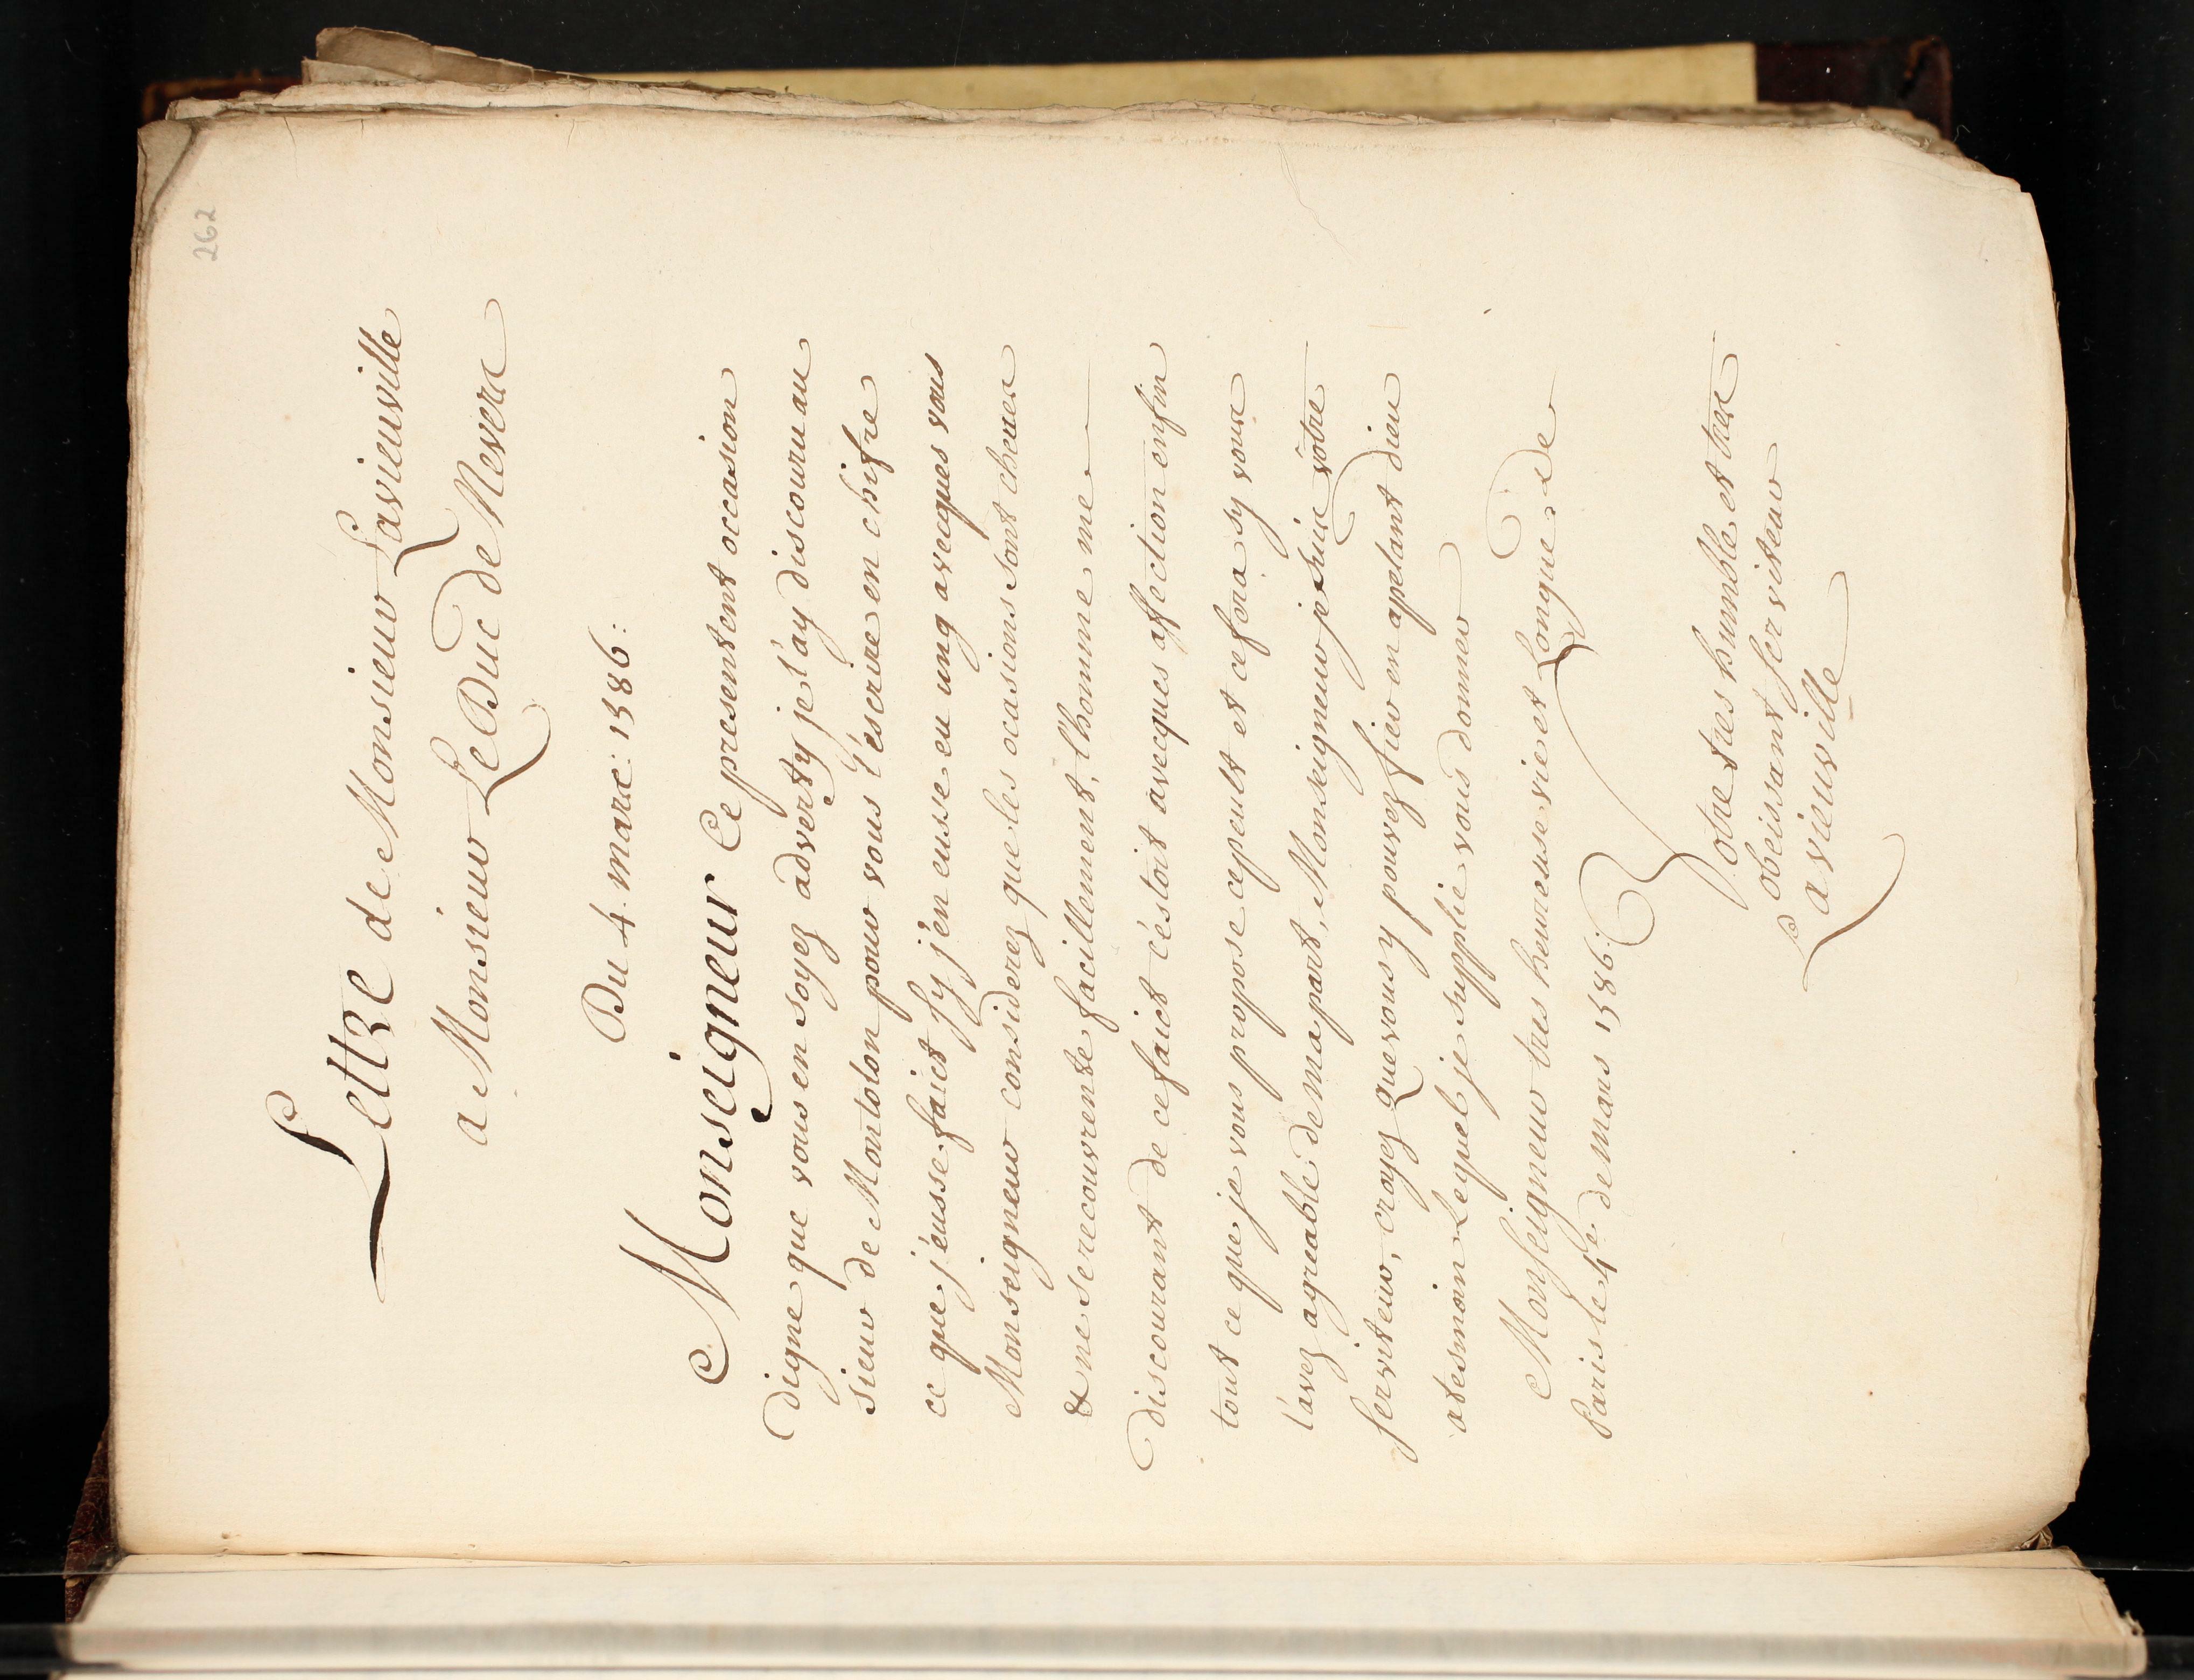 262
Lettre de Monsieur Lavieuville
a Monsieur Le Duc de Nevers
Du 4. mars 1586:
Monseigneur Ce presentent occasion
digne que vous en soyez adverty je l'ay discouru au
sieur de Montolon pour vous l'éscrire en chifre
ce que j'eusse faict sy j'en eusse eu ung avecques vous
Monseigneur considerez que les ocasions sont cheres
& ne se recouvrente facillement, l'homme me
discourant de ce faict c'éstoit avecques affection enfin
tout ce que je vous propose ce peult et ce fera sy vous
l'avez agreable de ma part, Monseigneur je suis vôtre
serviteur, croyez que vous y pouvez fier en apelant dieu
a tesmoin Lequel je supplie vous donner
Monseigneur tres heureuse vie et Longue. De
Paris le 4e. de Mars 1586:
Votre tres humble et tres
obeissant serviteur
Lavieuville